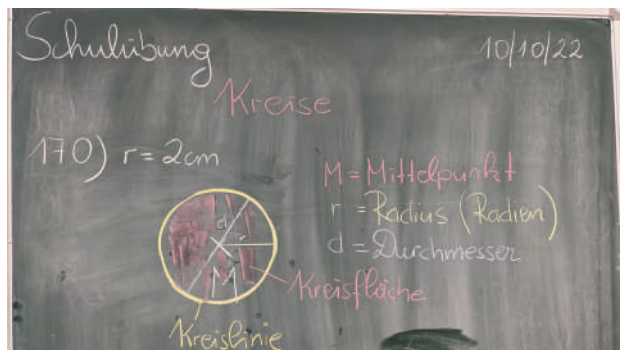 Schulübung 10/10/22
Kreise
170) r = 2cm
M = Mittelpunkt
r = Radius (Radien)
d = Durchmesser
d
r
M
Kreisfläche
Kreislinie